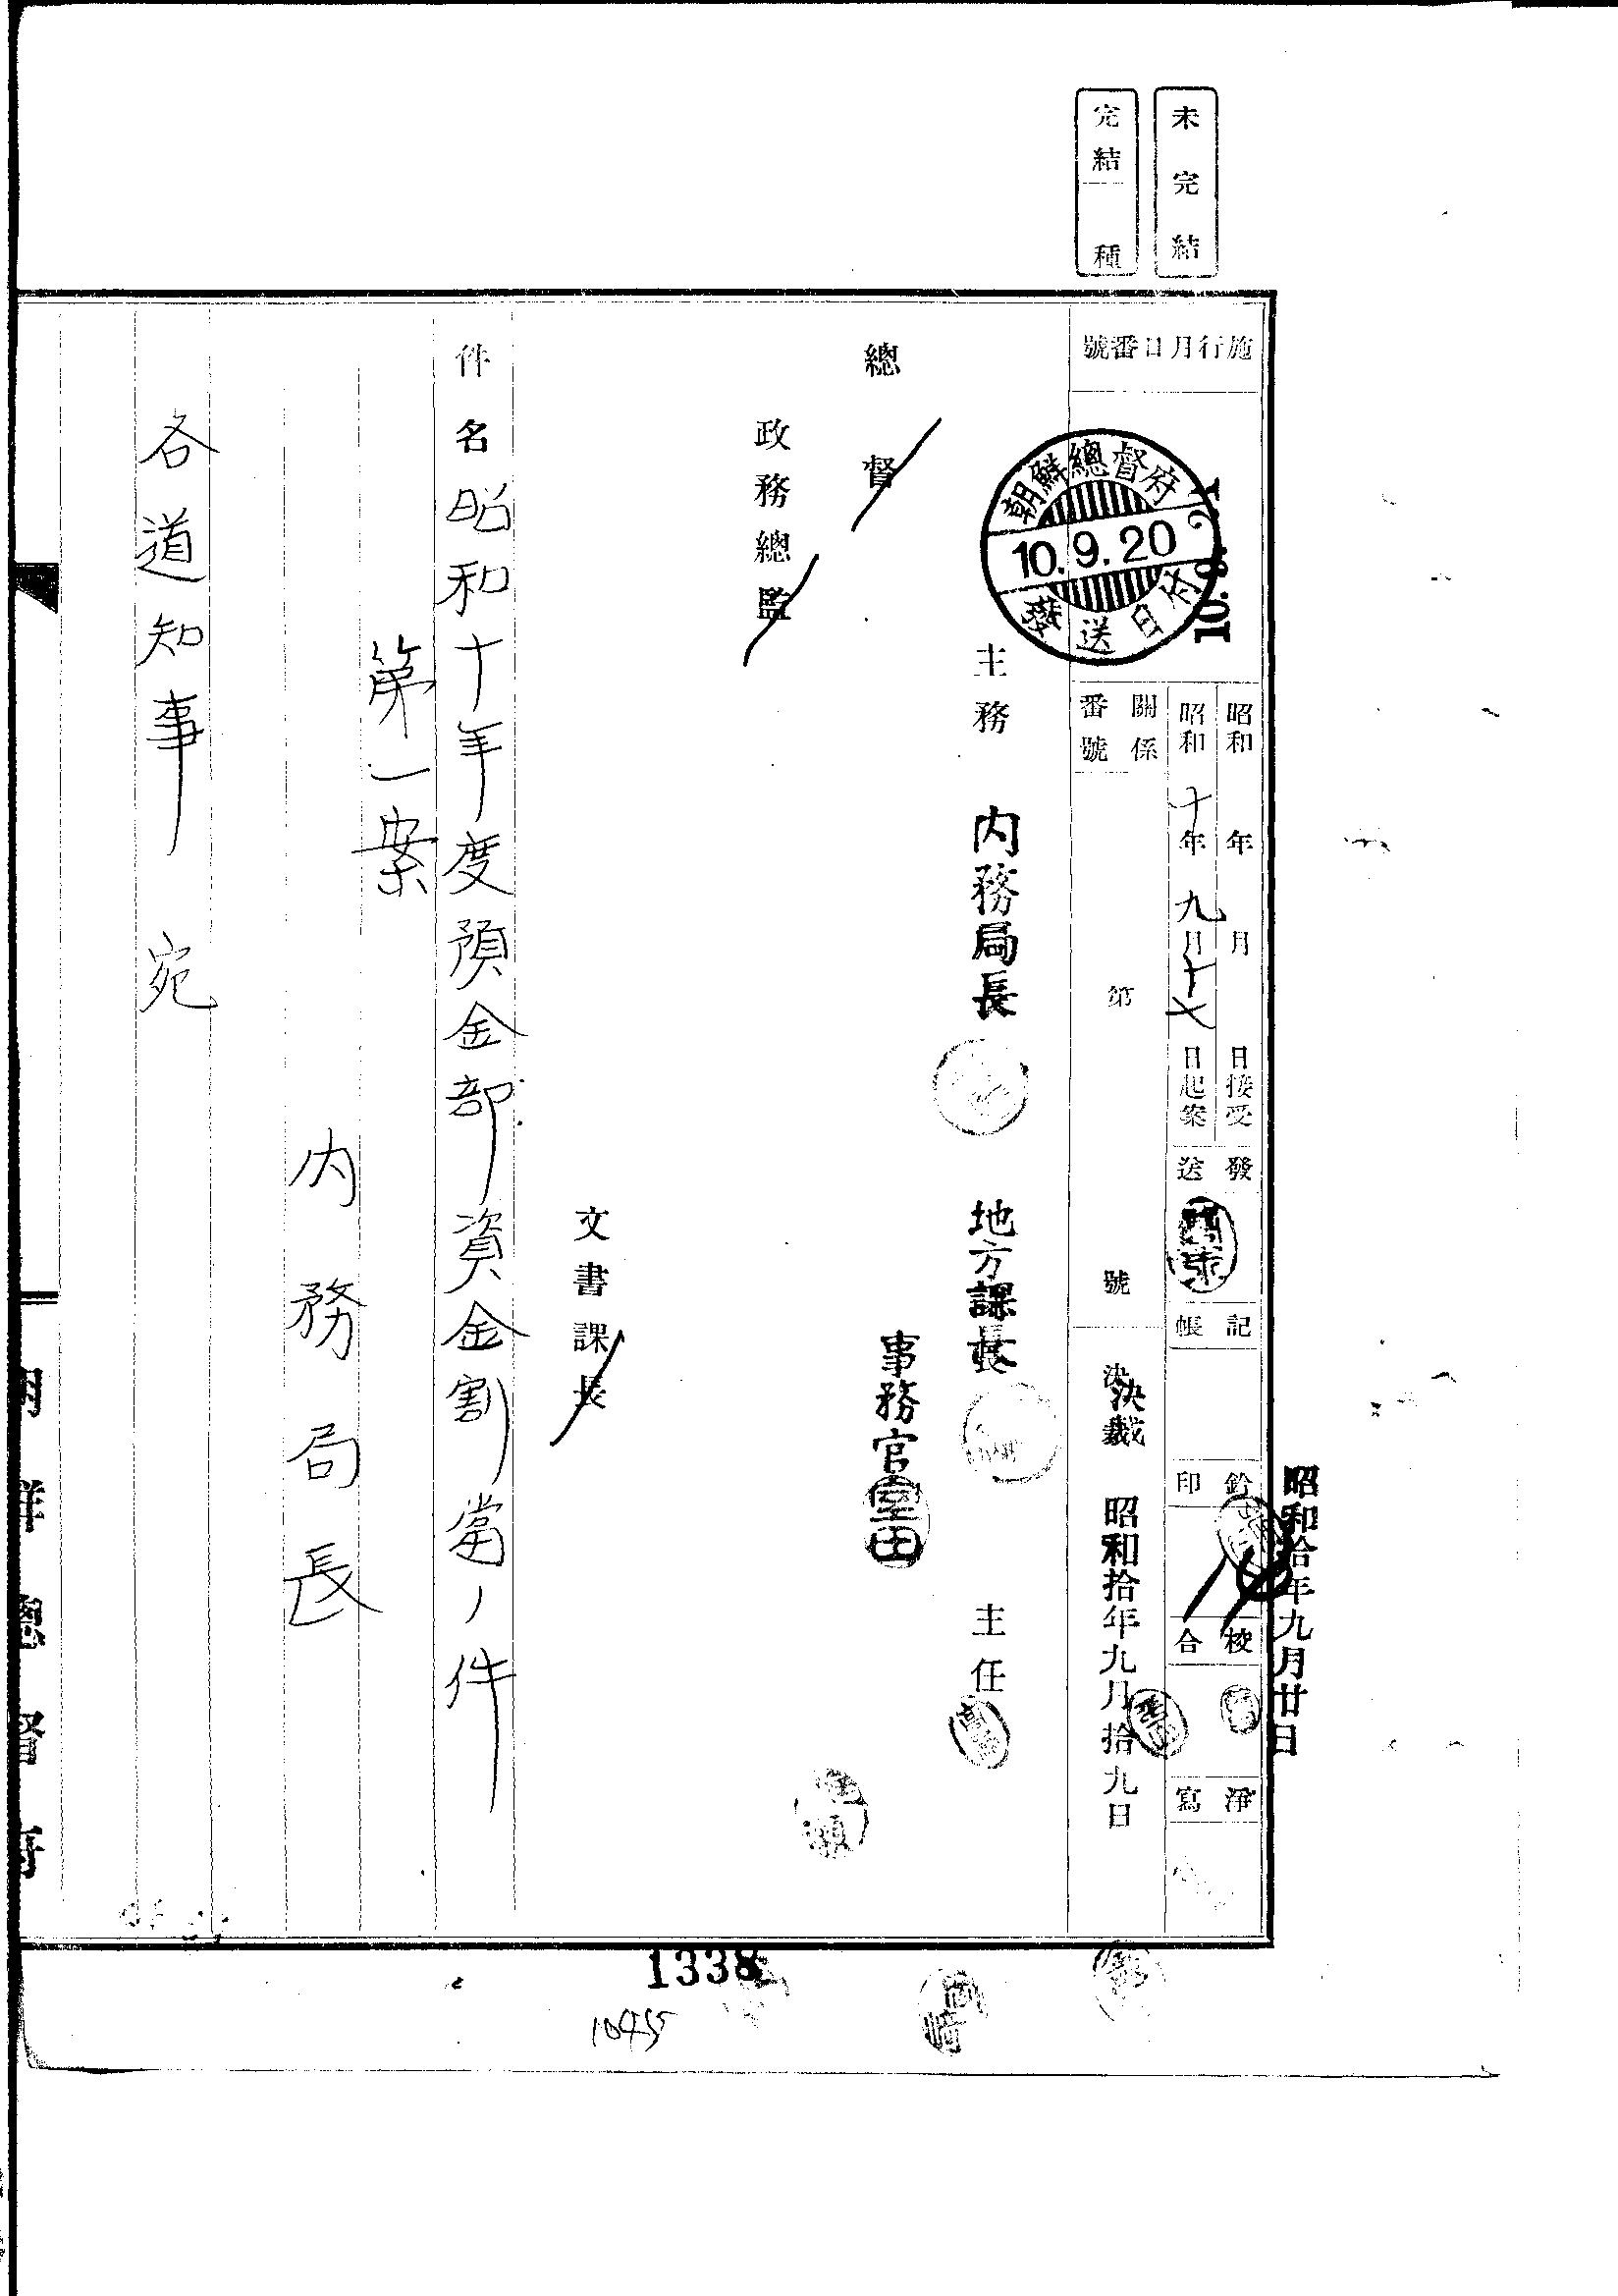 未完結
完結 種
昭和拾年九月廿日
施行月日番號
昭和 年 月 日接受
昭和十年九月十七日起案
發送
記帳
鈐印
校合
淨寫
朝鮮總督府
10.9.20
發送
關係番號
第 號
決裁 昭和拾年九月拾九日
主務 內務局長 地方課長 主任
高橋
事務官 室田
總督
政務總監
文書課長
件名 昭和十年度預金部資金割當ノ件
第一案
內務局長
各道知事宛
朝鮮總督府
1338
10455